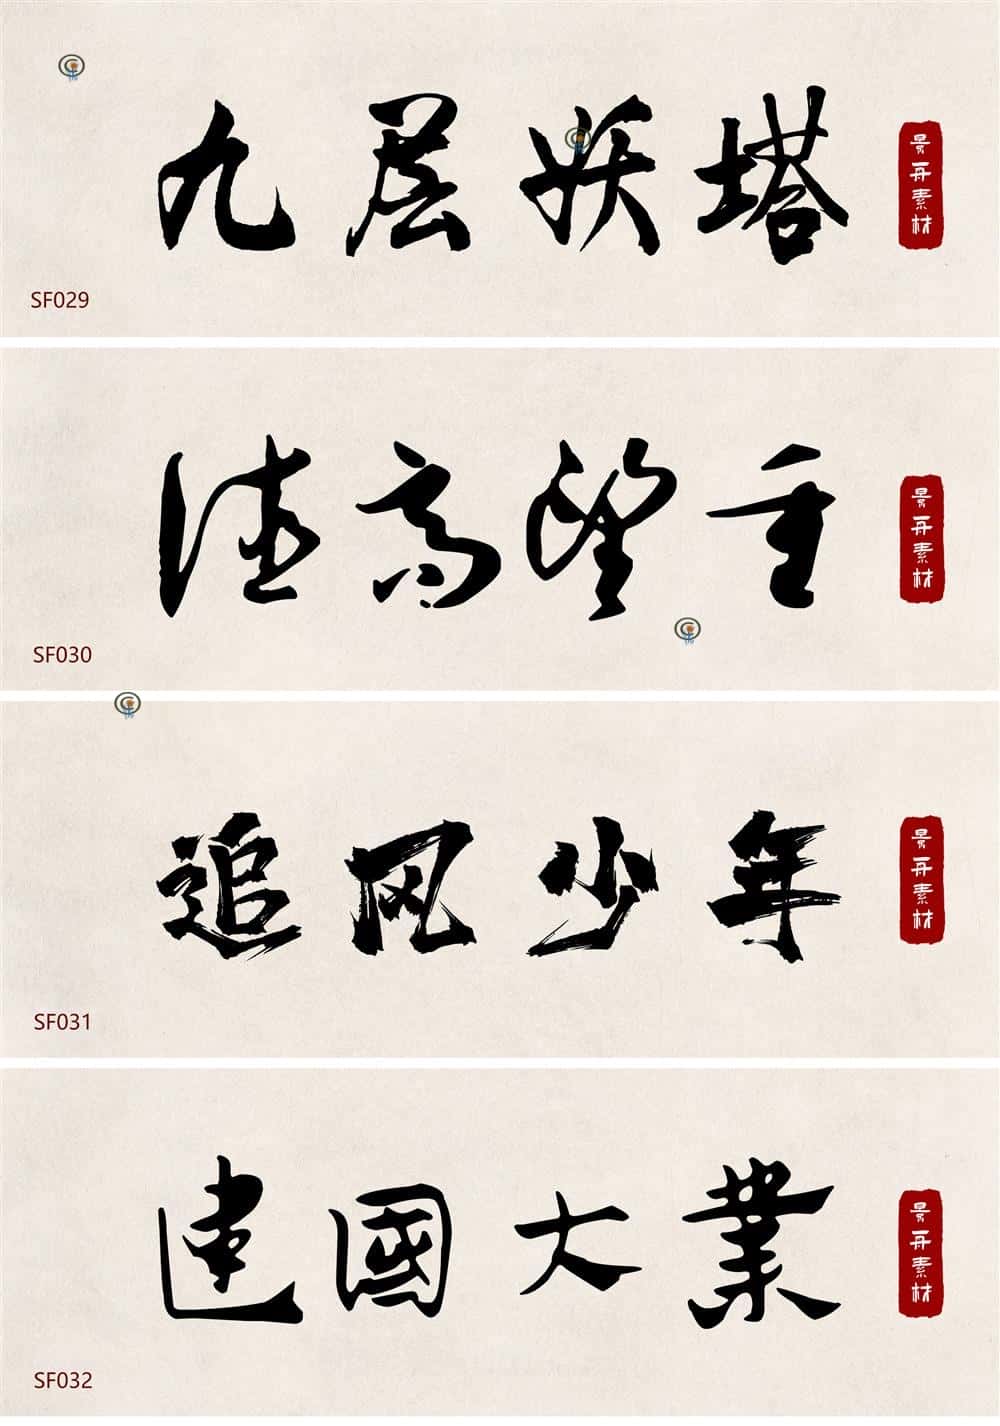 九层妖塔
景舟素材
SF029
德高望重
景舟素材
SF030
追风少年
景舟素材
SF031
建國大業
景舟素材
SF032